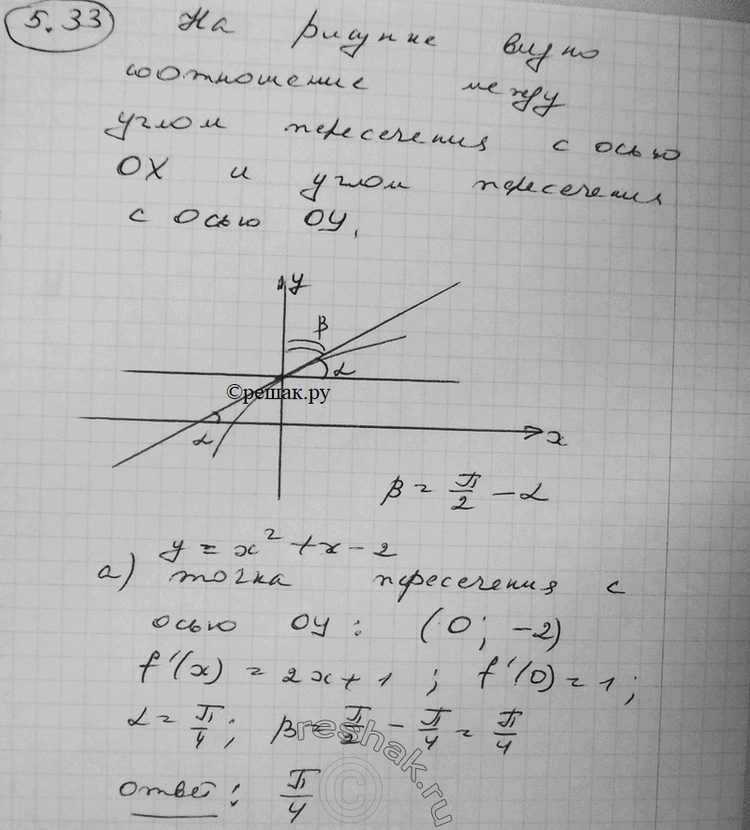 5.33 На рисунке видно
соотношение между
углом пересечения с осью
OX и углом пересечения
с осью OY.
y
β
α
©решак.ру
α
x
β = π/2 - α
y = x² + x - 2
а) точка пересечения с
осью OY: (0; -2)
f'(x) = 2x + 1; f'(0) = 1;
α = π/4; β = π/2 - π/4 = π/4
reshak.ru
©
Ответ: π/4